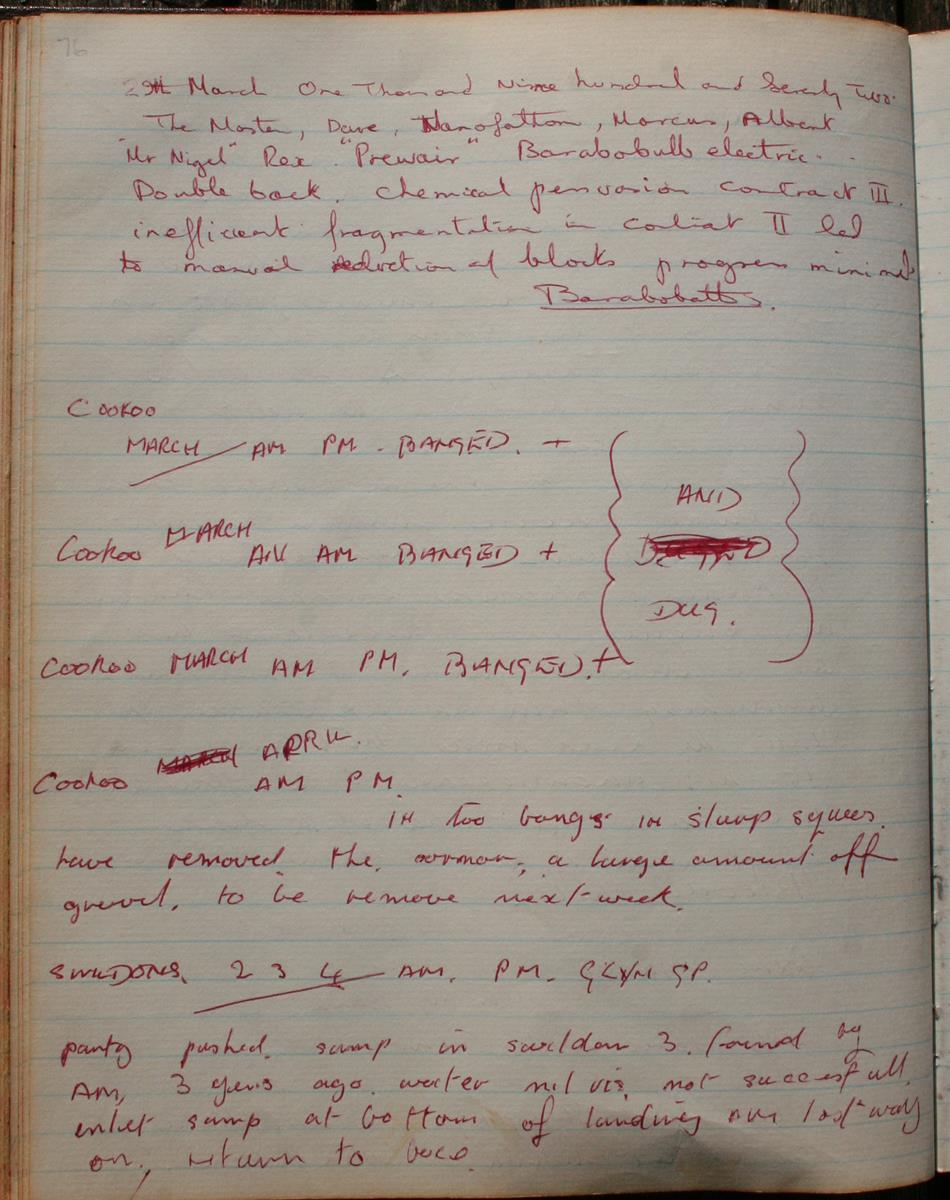 76
29th March One Thousand Nine hundred and Seventy Two.
The Master, Dave, Nanofathom, Marcus, Albert
"Mr Nigel" Rex "Prewair" Barabobulb electric.
Double back. Chemical persuasion contract III.
inefficient fragmentation in contrat II led
to manual reduction of blocks progress minimal
Barabobatts.
COOKOO
MARCH AM PM. BANGED. +
AND
Cookoo MARCH AM BANGED +
DUG.
COOKOO MARCH AM PM. BANGED. +
Cookoo MARCH APRIL.
AM PM.
in too bangs in slurp
have removed the, a large amount off
gravel, to be remove next week.
SWILDONS. 2 3 4 AM. PM.
party pushed sump in swildon 3. found by
AM, 3 years ago. water nil vis, not successfull.
inlet sump at bottom of landing
on, return to